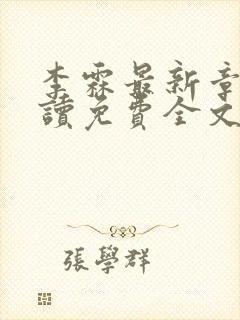 李霖最新章
讀免費全文
張學群